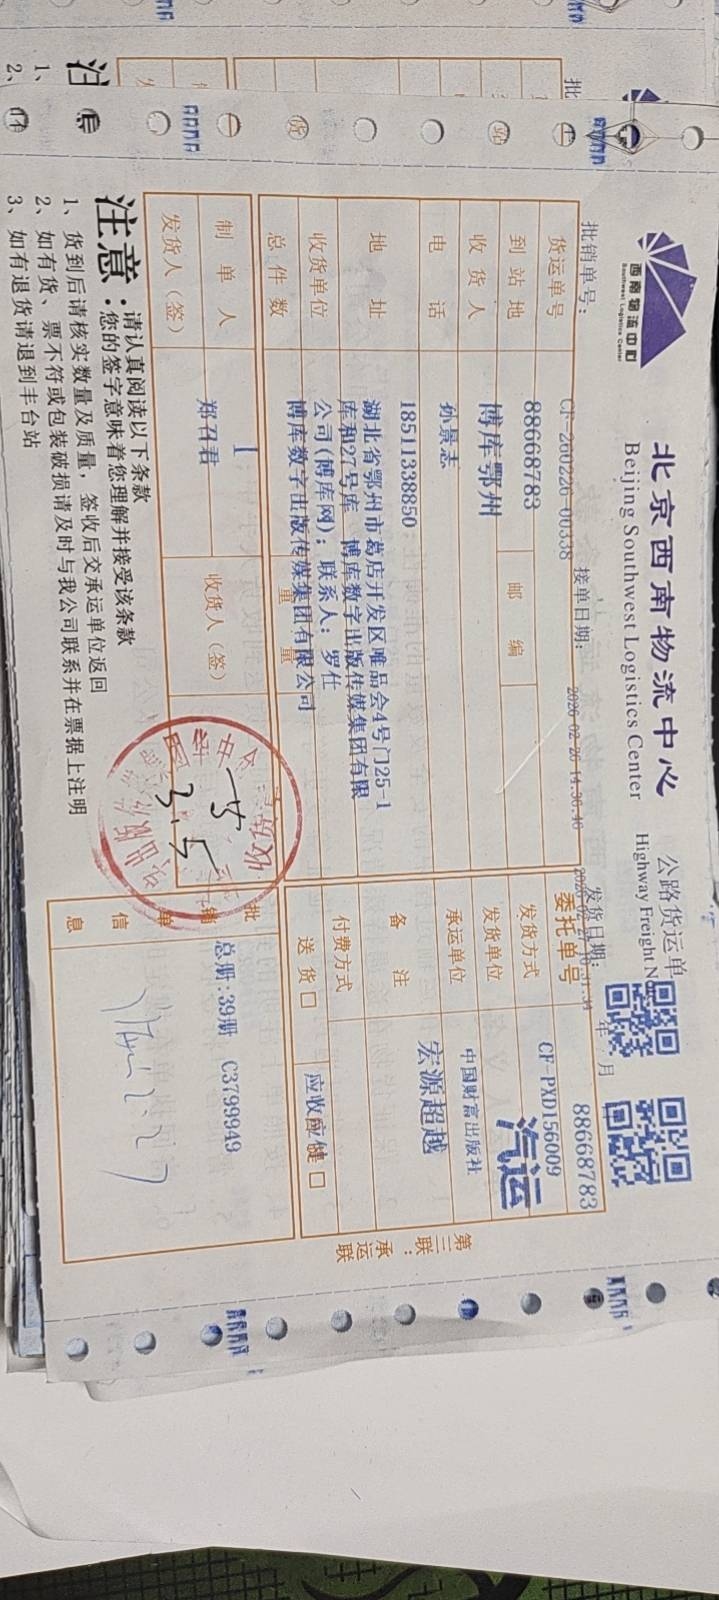 西南物流中心
Southwest Logistics Center
北京西南物流中心
Beijing Southwest Logistics Center
公路货运单
Highway Freight N
批销单号：
CF-260226-00338
接单日期：
2026-02-26 14:36:46
发货日期：
年 月
货运单号
88668783
委托单号
88668783
到站地
博库鄂州
邮编
发货方式
CF-PXD156009
汽运
收货人
孙景志
发货单位
中国财富出版社
电话
18511338850
承运单位
宏源超越
地址
湖北省鄂州市葛店开发区唯品会4号门25-1
库和27号库 博库数字出版传媒集团有限
公司(博库网)；联系人：罗仕
备注
收货单位
博库数字出版传媒集团有限公司
付费方式
总件数
1
重量
送货□
应收
□
制单人
郑召君
收货人（签）
发货人（签）
3.5
批销单信息
总册:39册 C3799949
第三联：承运联
注意：
请认真阅读以下条款
您的签字意味着您理解并接受该条款
1、货到后请核实数量及质量，签收后交承运单位返回
2、如有货、票不符或包装破损请及时与我公司联系并在票据上注明
3、如有退货请退到丰台站